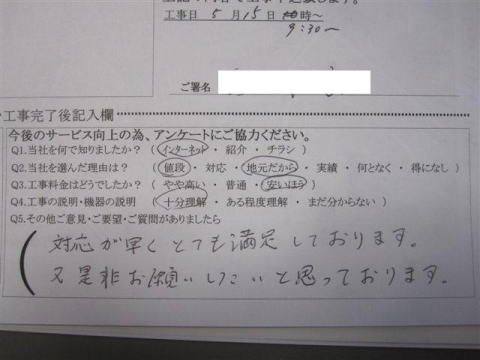 工事日 5月15日 時~
9:30~
ご署名
工事完了後記入欄
今後のサービス向上の為、アンケートにご協力ください。
Q1.当社を何で知りましたか? (インターネット ・ 紹介 ・ チラシ)
Q2.当社を選んだ理由は? (値段 ・ 対応 ・ 地元だから ・ 実績 ・ 何となく ・ 得になし)
Q3.工事料金はどうでしたか? (やや高い ・ 普通 ・ 安いほう)
Q4.工事の説明・機器の説明 (十分理解 ・ ある程度理解 ・ まだ分からない)
Q5.その他ご意見・ご要望・ご質問がありましたら
対応が早くとても満足しております。
又是非お願いしたいと思っております。